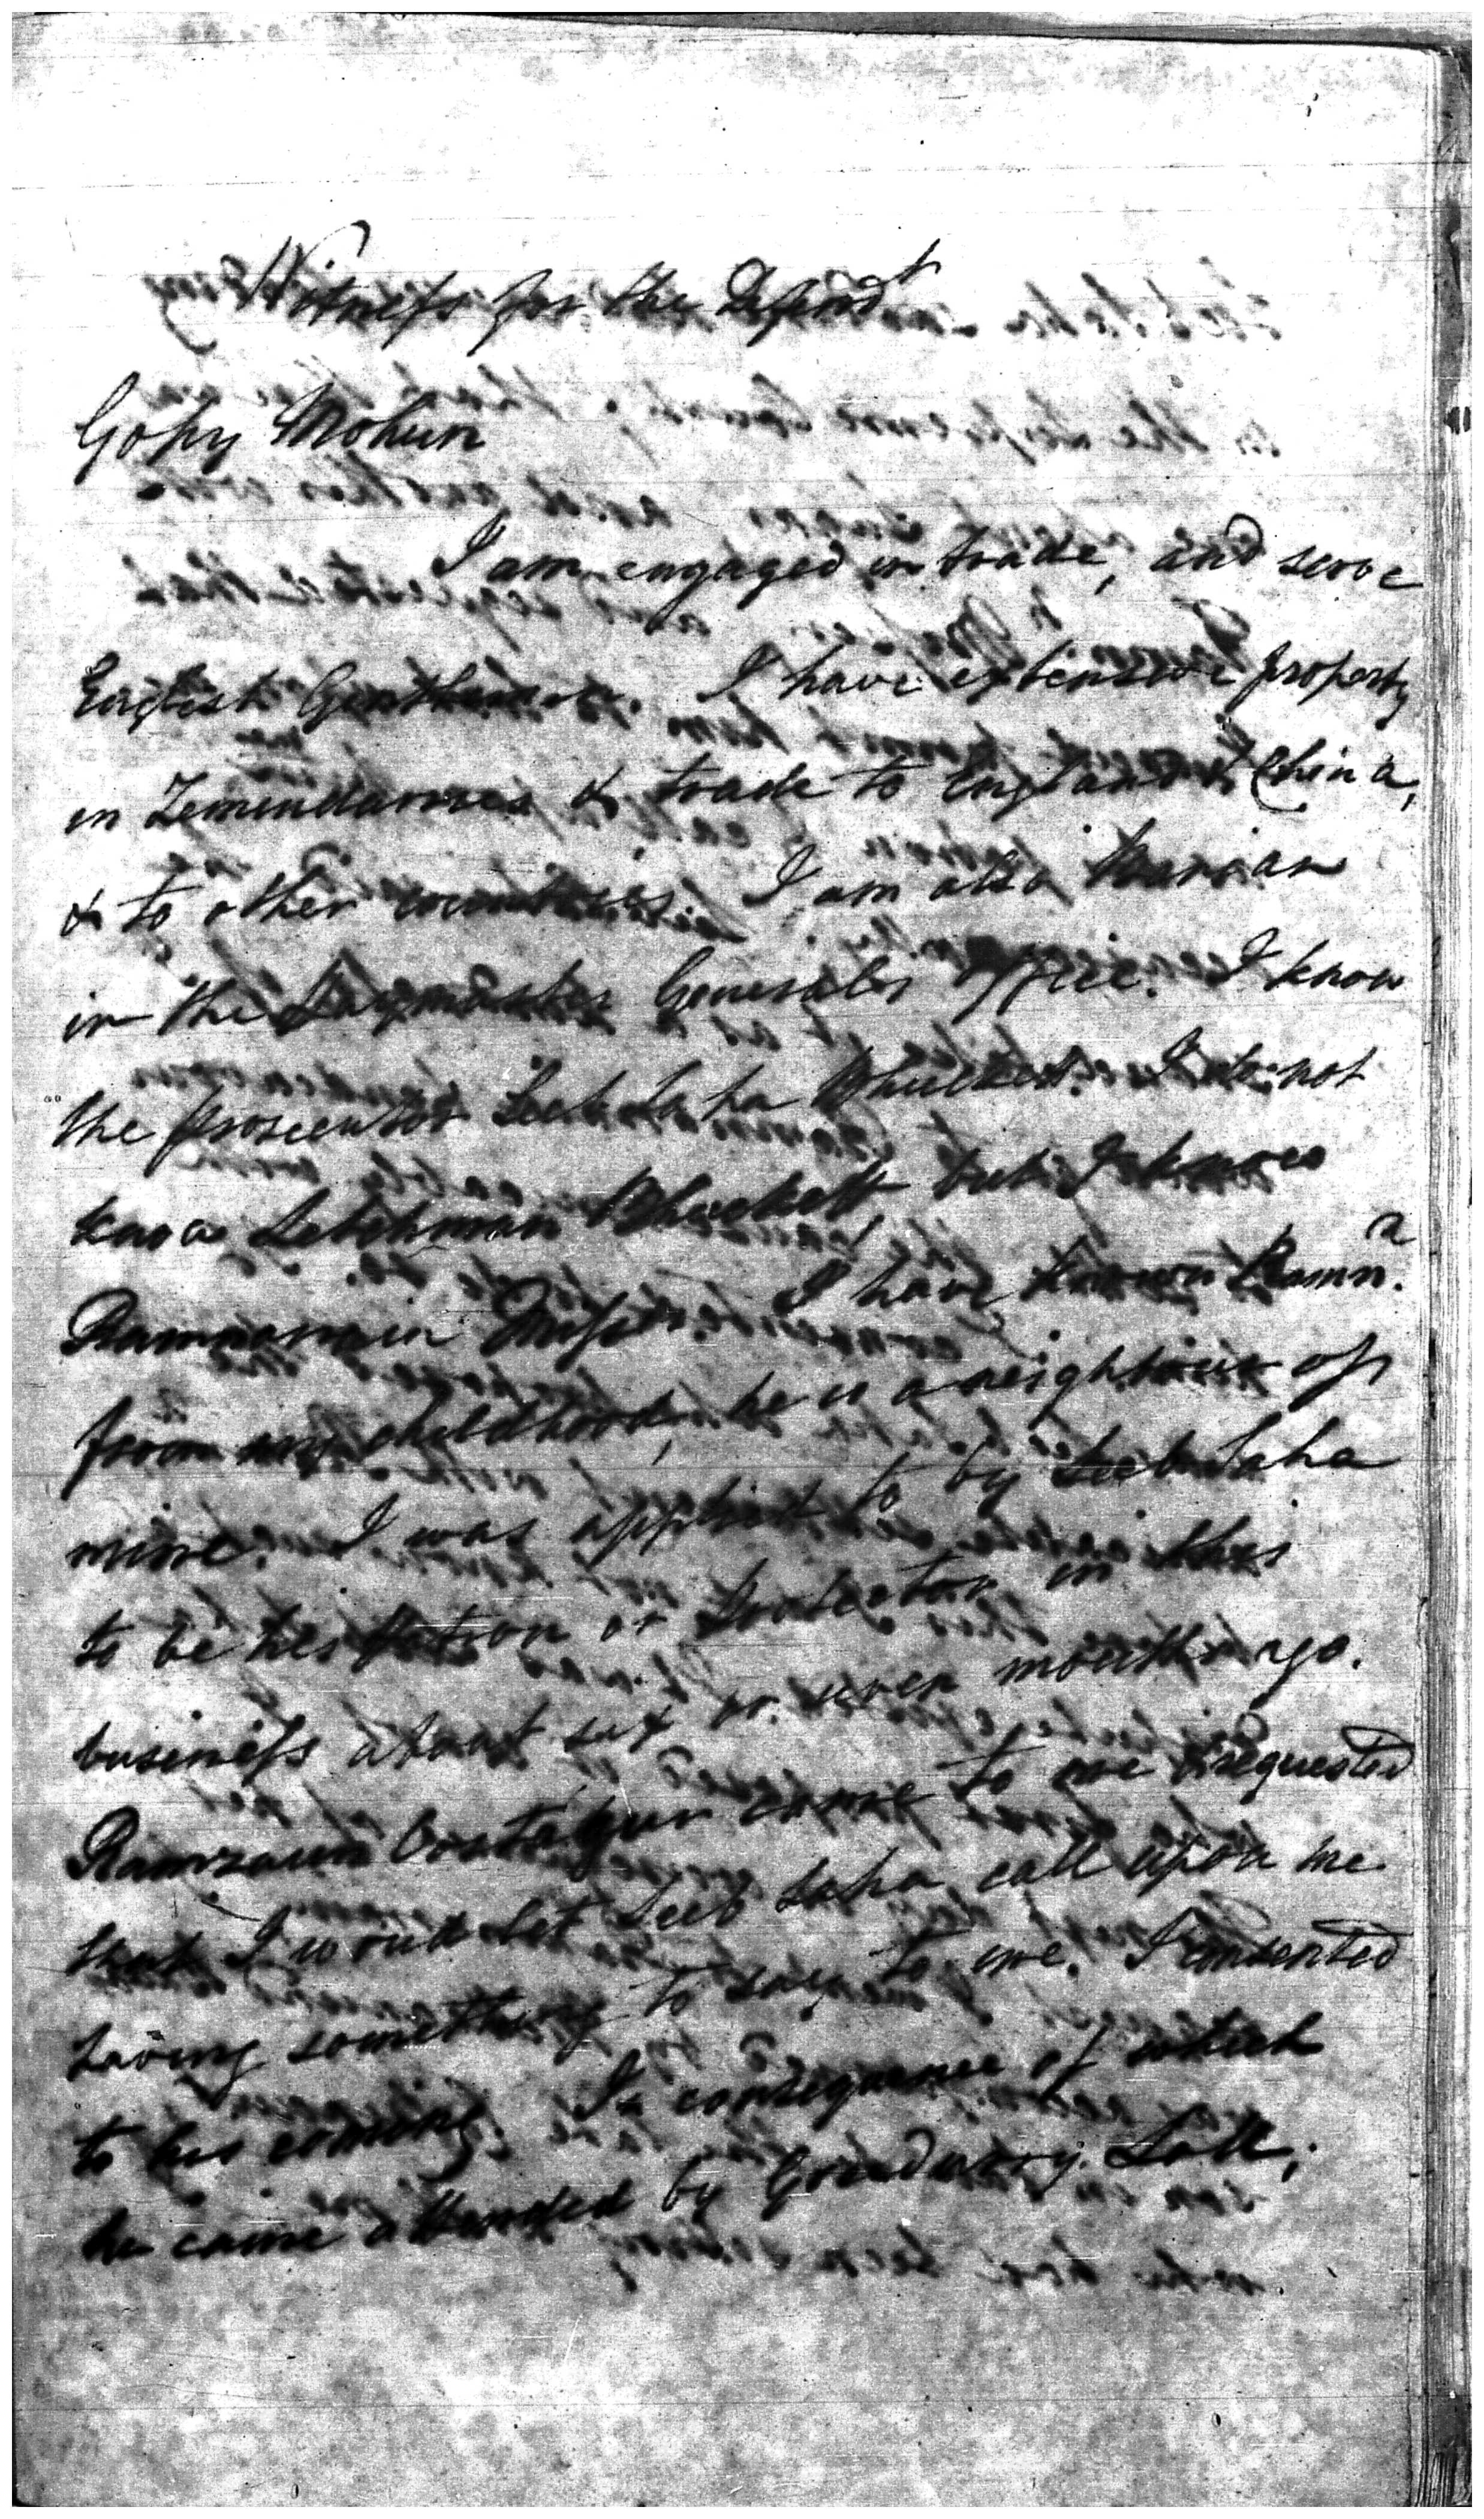 Witness for the Defend^t
Gopy Mohun
I am engaged in trade, and serve
English Gentlemen. I have extensive property
in Zemindarries & trade to England & China,
& to other countries. I am also Banian
in the Paymaster Generals office. I know
the prosecutor Seeb Saha Bhuckett. I do not
know Letchman Bhuckett, but I know
Ramnarrain Misser. I have known Ramn.^a
from my childhood, he is a neighbour of
mine. I was applied to by Seeb Saha
to be his patron or Protector in this
business about six or seven months ago.
Ramzaun came to me & requested
that I would let Seeb Saha call upon me
having something to say to me. I consented
to his coming. In consequence of which
he came attended by Lall;